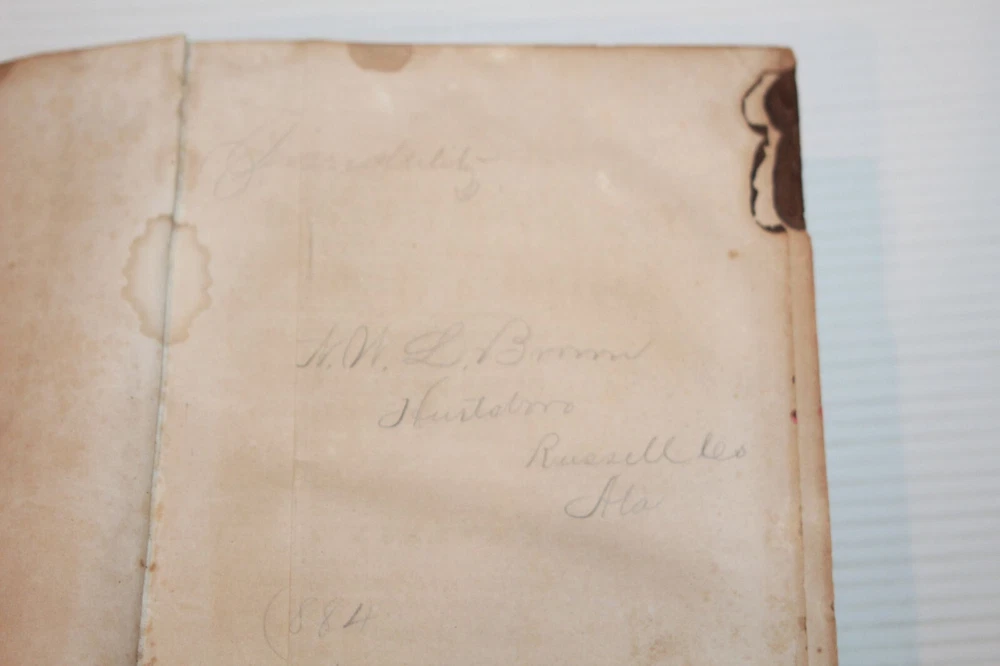 N. W. L. Brown
Hurtsboro
Russell Co
Ala
1884